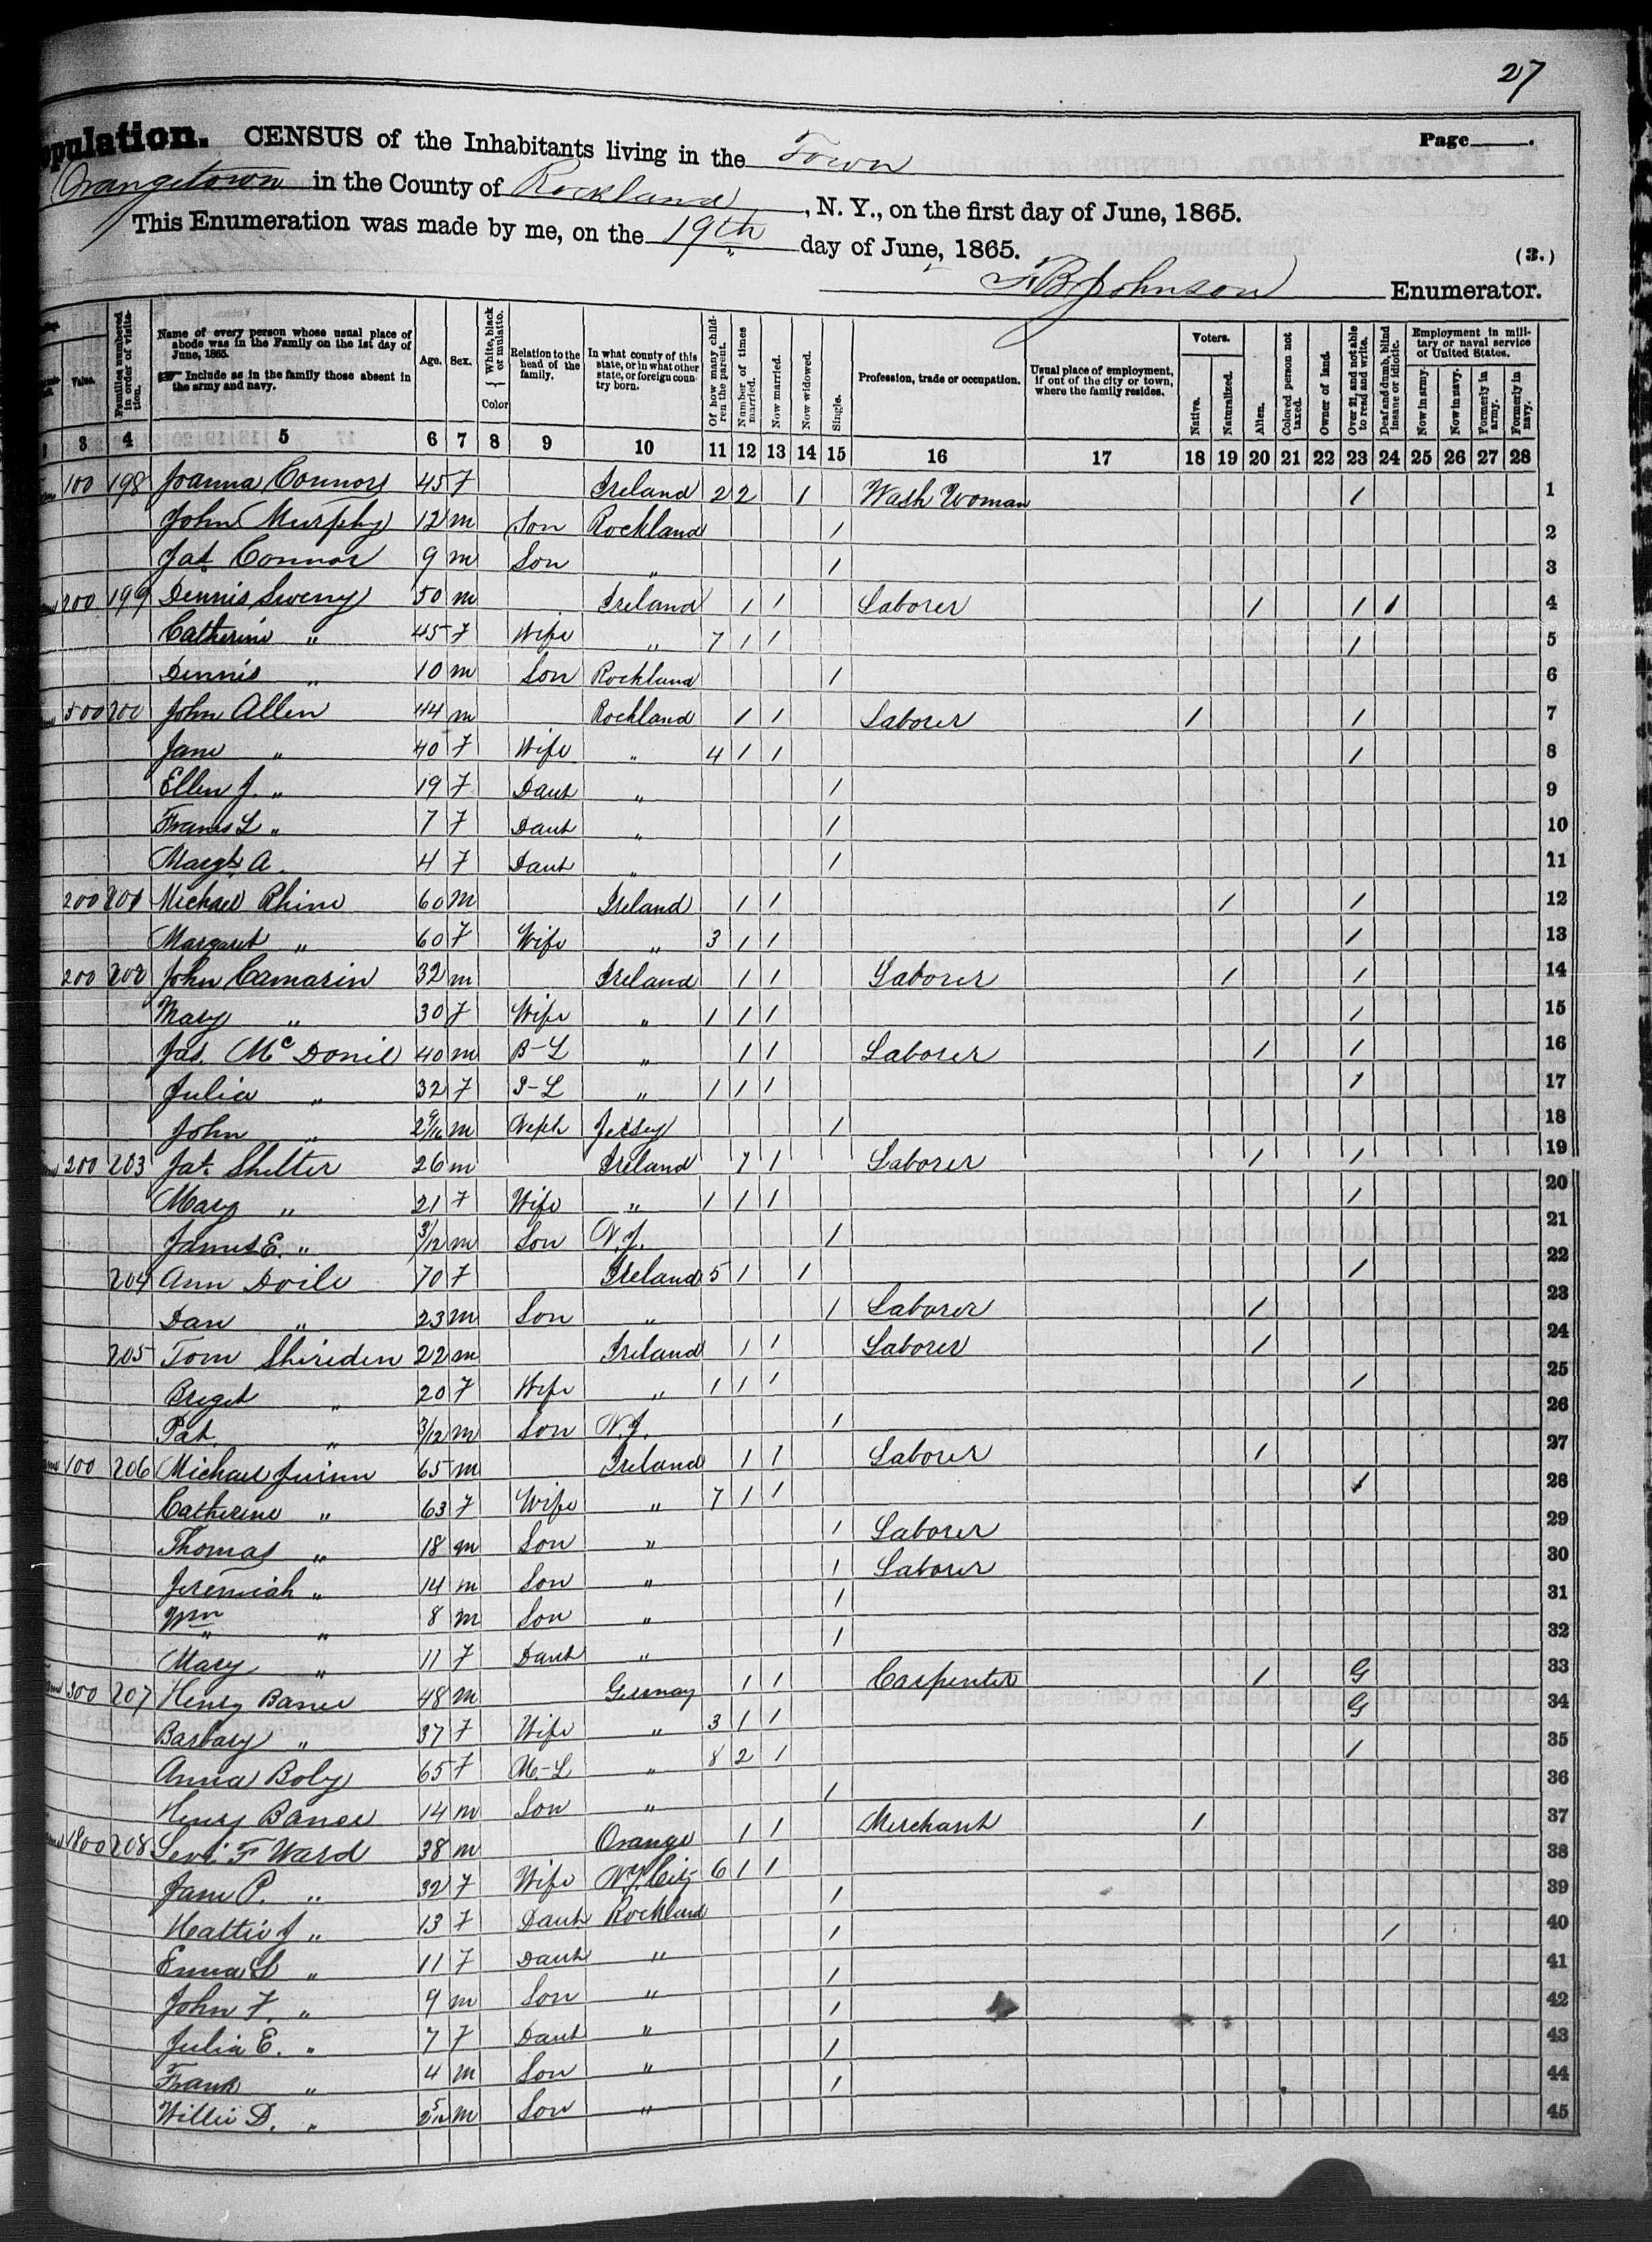 27
opulation. CENSUS of the Inhabitants living in the Town Page .
Orangetown in the County of Rockland , N. Y., on the first day of June, 1865.
This Enumeration was made by me, on the 19th day of June, 1865.
(3.)
Johnson Enumerator.
Value.
Families numbered in order of visitation.
Name of every person whose usual place of abode was in the Family on the 1st day of June, 1865.
☞ Include as in the family those absent in the army and navy.
Age.
Sex.
White, black or mulatto.
Color
Relation to the head of the family.
In what county of this state, or in what other state, or foreign country born.
Of how many children the parent.
Number of times married.
Now married.
Now widowed.
Single.
Profession, trade or occupation.
Usual place of employment, if out of the city or town, where the family resides.
Voters.
Native.
Naturalized.
Alien.
Colored person not taxed.
Owner of land.
Over 21, and not able to read and write.
Deaf and dumb, blind insane or idiotic.
Employment in military or naval service of United States.
Now in army.
Now in navy.
Formerly in army.
Formerly in navy.
3 4 5 6 7 8 9 10 11 12 13 14 15 16 17 18 19 20 21 22 23 24 25 26 27 28
100 198 Joanna Connors 45 F Ireland 2 2 1 Wash Woman 1 1
John Murphy 12 m Son Rockland 1 2
Jas. Connor 9 m Son " 1 3
200 199 Dennis Sweny 50 m Ireland 1 1 Laborer 1 1 1 4
Catherine " 45 F Wife " 7 1 1 1 5
Dennis " 10 m Son Rockland 1 6
500 200 John Allen 44 m Rockland 1 1 Laborer 1 1 7
Jane " 40 F Wife " 4 1 1 1 8
Ellen J. " 19 F Daut " 1 9
Frans L " 7 F Daut " 1 10
Margt. A. 4 F Daut " 1 11
200 201 Michael Rhine 60 m Ireland 1 1 1 1 12
Margaret " 60 F Wife " 3 1 1 1 13
200 202 John Camarin 32 m Ireland 1 1 Laborer 1 1 14
Mary " 30 F Wife " 1 1 1 1 15
Jas. McDonil 40 m B-L " 1 1 Laborer 1 1 16
Julia " 32 F S-L " 1 1 1 1 17
John " 2 m Neph Jersey 1 18
200 203 Jas. Shelter 26 m Ireland 1 1 Laborer 1 1 19
Mary " 21 F Wife " 1 1 1 1 20
James E. " 3/12 m Son N.J. 1 21
204 Ann Doile 70 F Ireland 5 1 1 1 22
Dan " 23 m Son " 1 Laborer 1 23
205 Tom Shiriden 22 m Ireland 1 1 Laborer 1 24
Briget " 20 F Wife " 1 1 1 1 25
Pat. " 3/12 m Son N.J. 1 26
100 206 Michael Quinn 65 m Ireland 1 1 Laborer 1 27
Catherine " 63 F Wife " 7 1 1 1 28
Thomas " 18 m Son " 1 Laborer 29
Jeremiah " 14 m Son " 1 Laborer 30
Wm " 8 m Son " 1 31
Mary " 11 F Daut " 1 32
300 207 Henry Baner 48 m Germay 1 1 Carpenter 1 G 33
Barbary " 37 F Wife " 3 1 1 G 34
Anna Boly 65 F M-L " 8 2 1 1 35
Henry Baner 14 m Son " 1 36
1800 208 Levi F Ward 38 m Orange 1 1 Merchant 1 37
Jane P. " 32 F Wife N.Y. City 6 1 1 38
Hattie J " 13 F Daut Rockland 1 39
Emma S " 11 F Daut " 1 1 40
John F. " 9 m Son " 1 41
Julia E. " 7 F Daut " 1 42
Frank " 4 m Son " 1 43
Willie D. " 2 5/12 m Son " 1 44
45